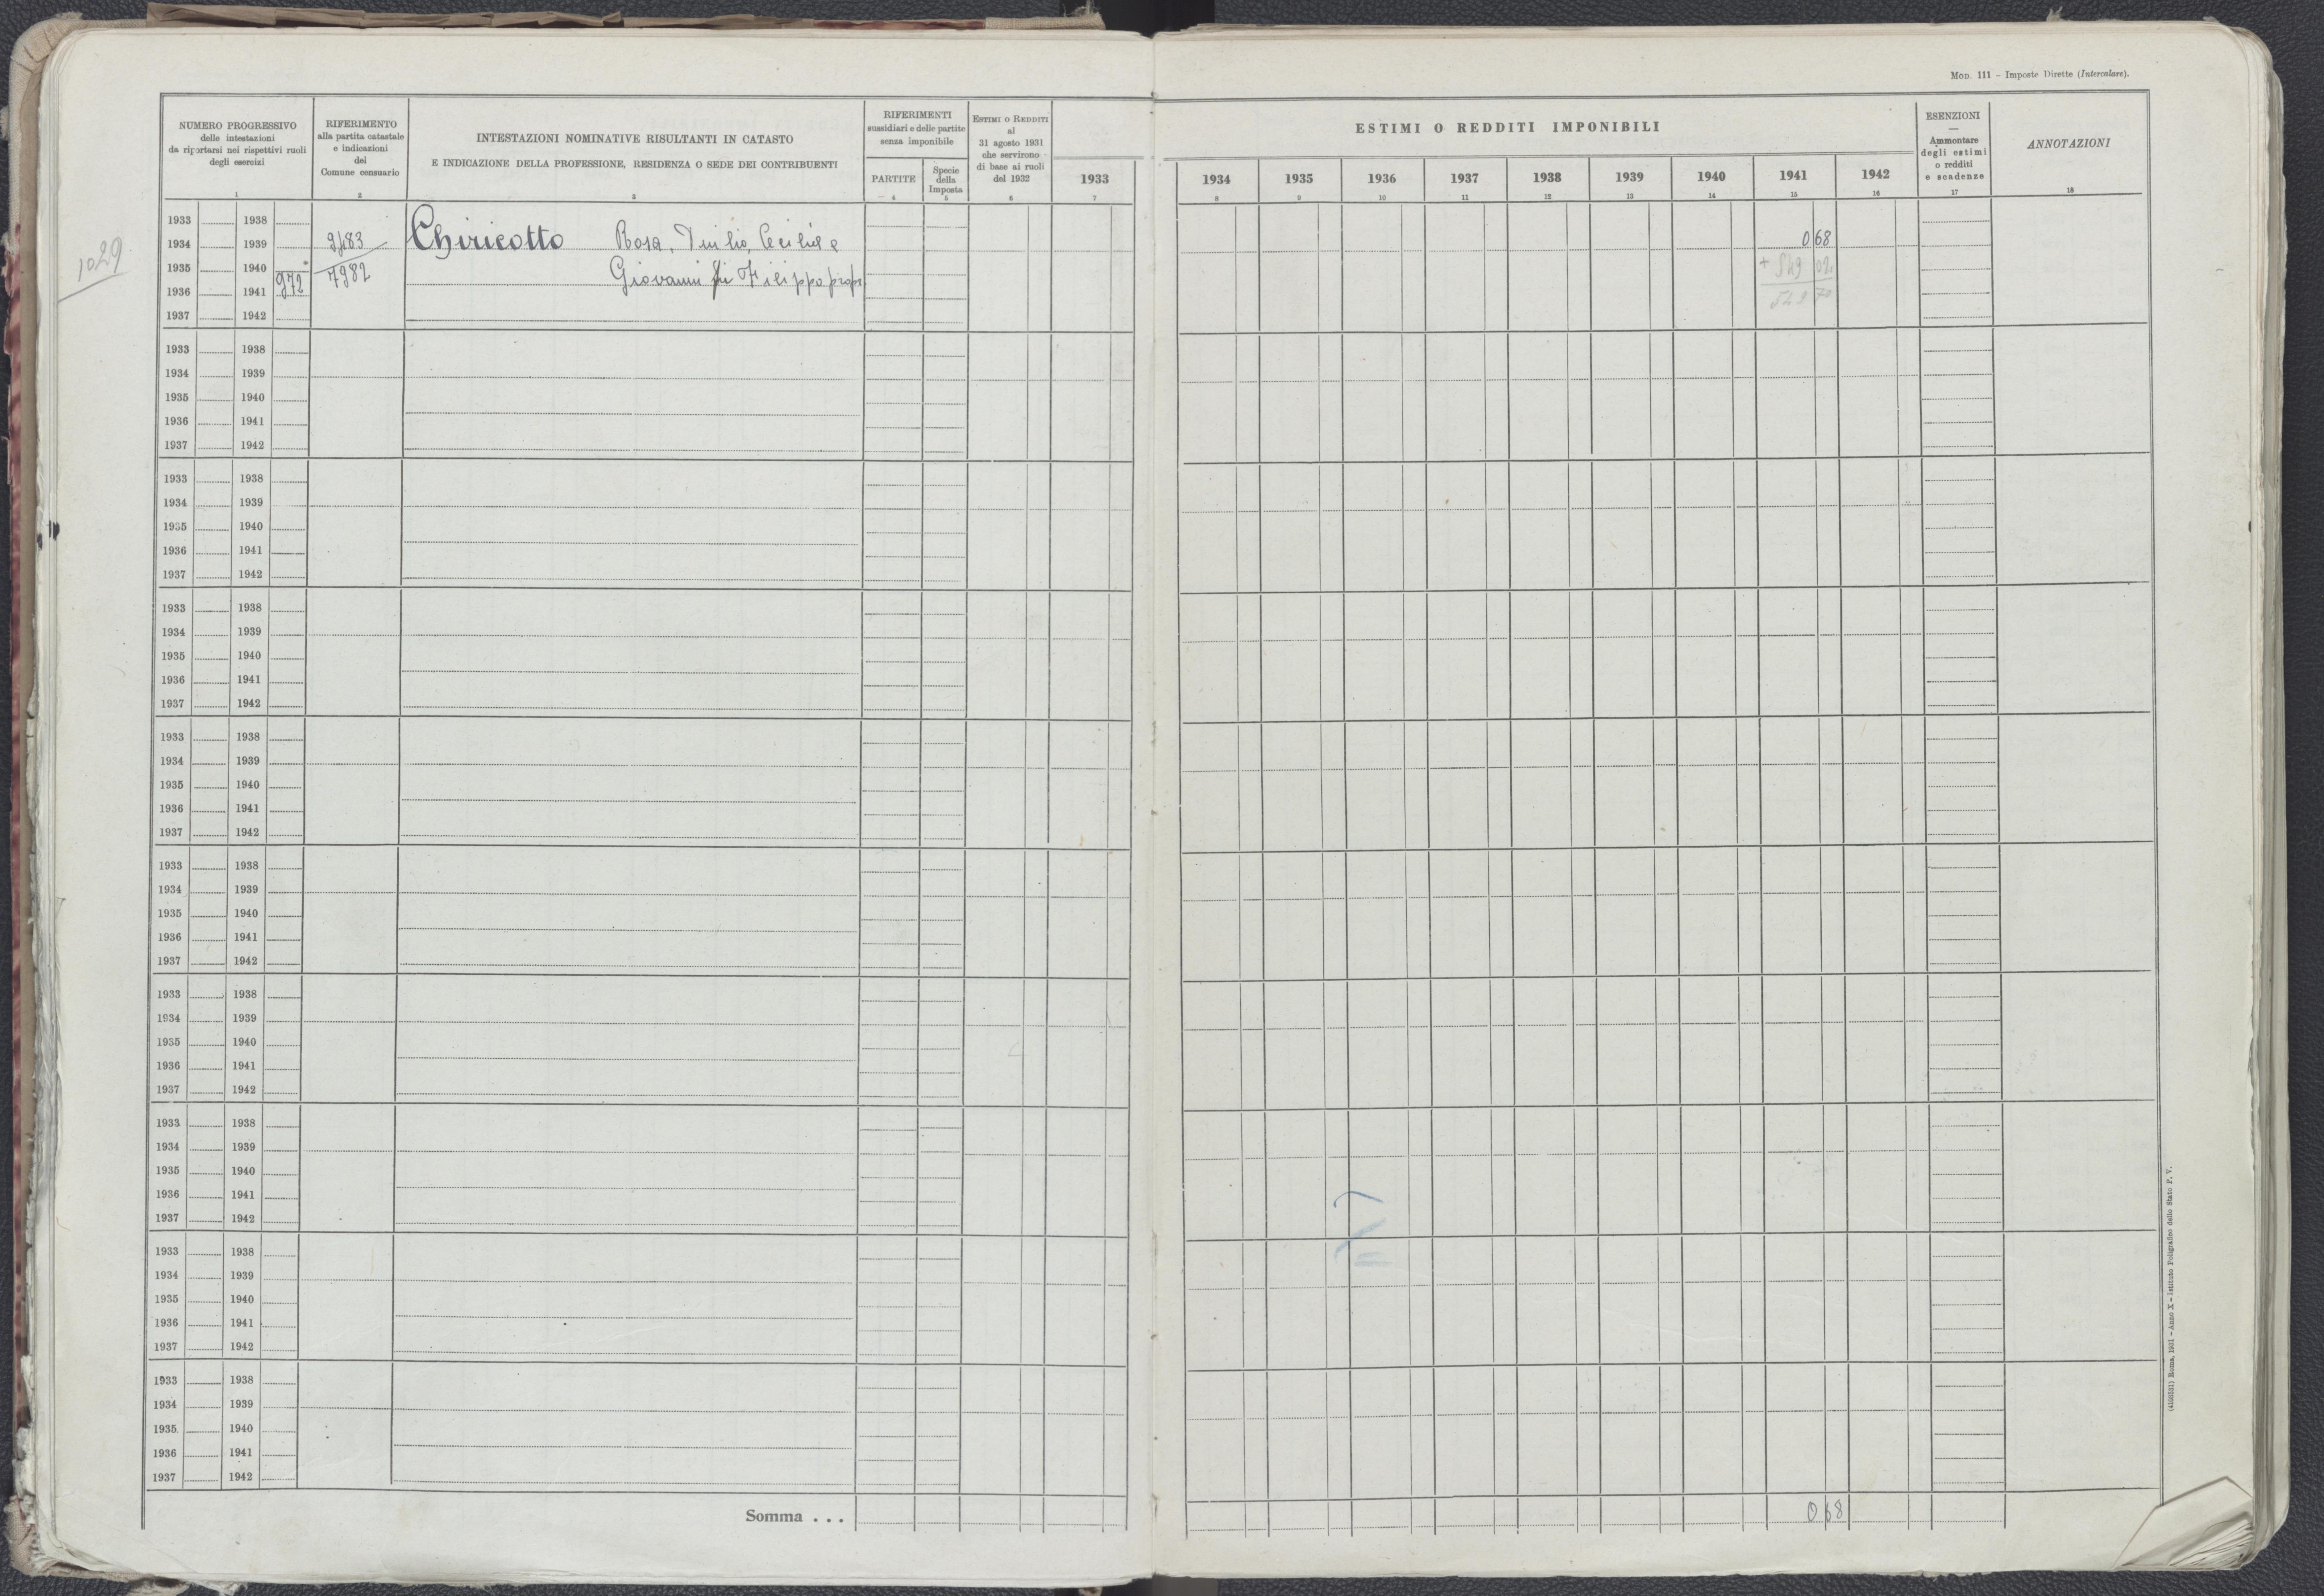 MOD. 111 – Imposte Dirette (Intercalare).
NUMERO PROGRESSIVO
delle intestazioni
da riportarsi nei rispettivi ruoli
degli esercizi
1
RIFERIMENTO
alla partita catastale
e indicazioni
del
Comune censuario
2
INTESTAZIONI NOMINATIVE RISULTANTI IN CATASTO
E INDICAZIONE DELLA PROFESSIONE, RESIDENZA O SEDE DEI CONTRIBUENTI
3
RIFERIMENTI
sussidiari e delle partite
senza imponibile
PARTITE
4
Specie
della
Imposta
5
ESTIMI O REDDITI
al
31 agosto 1931
che servirono
di base ai ruoli
del 1932
6
ESTIMI O REDDITI IMPONIBILI
1933 1934 1935 1936 1937 1938 1939 1940 1941 1942
7 8 9 10 11 12 13 14 15 16
ESENZIONI
—
Ammontare
degli estimi
o redditi
e scadenze
17
ANNOTAZIONI
18
1029
1933 1938
1934 1939 9483 Chiricotto Rosa, Duilio, Cecilia e 0 68
1935 1940 7982 Giovanni fu Filippo propr. + 549 02
1936 1941 972
549 70
1937 1942
1933 1938
1934 1939
1935 1940
1936 1941
1937 1942
1933 1938
1934 1939
1935 1940
1936 1941
1937 1942
1933 1938
1934 1939
1935 1940
1936 1941
1937 1942
1933 1938
1934 1939
1935 1940
1936 1941
1937 1942
1933 1938
1934 1939
1935 1940
1936 1941
1937 1942
1933 1938
1934 1939
1935 1940
1936 1941
1937 1942
1933 1938
1934 1939
1935 1940
1936 1941
1937 1942
1933 1938
1934 1939
1935 1940
1936 1941
1937 1942
1933 1938
1934 1939
1935 1940
1936 1941
1937 1942
Somma . . . 0 68
Roma, 1931 – Anno X – Istituto Poligrafico dello Stato P. V.